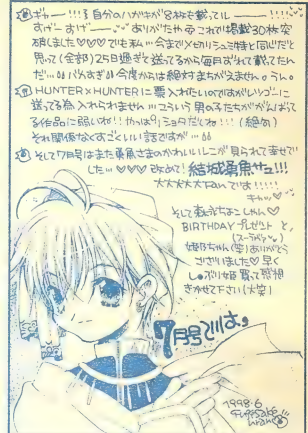 ギャー!!! 自分のハガキが8枚も載ってルーーー!!!!
すげーすげー ありがたや これで掲載30枚突
破しました♡♡♡ でも私…今までメ切リシュミ特と同じだと
思って(全部)25日過ぎと送ってるから毎月おくれて載ってたん
だ… バカすぎ 今度からは絶対まちがえません。うん。
HUNTER×HUNTERに票入れたいのですがレツゴに
送ってる為入れられません…こういう男の子たちががんばって
る作品に弱いね!! やっぱりショタだよね!!(絶句)
それ関係なくすごくいい話ですが…
そして7月号はまた勇魚さまのかわいいレニが見られて幸せで
した…♡♡♡ 改めて! 結城勇魚サマ!!!
大大大大大Fanです!!!!!
そして ちよこしゃん♡
BIRTHDAYプレゼント と、
姫ちゃん(笑)ありがとう
ございました♡ 早く
し●ぶり姫 買って感想
きかせて下さい(大笑)
7月号では。
1998.6